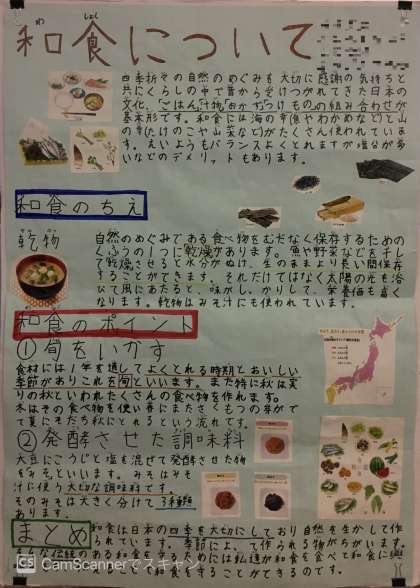 和食について
わ しょく
四季折々の自然のめぐみを大切に感謝の気持ちと
共にくらしの中で昔から受けつがれてきた日本の
文化。ごはん、汁物、おかず、つけものの組み合わせが
基本形です。和食には海の幸(魚やわかめなど)と山
の幸(たけのこや山菜など)がたくさん使われていま
す。えいようもバランスよくとれますが塩分が多
いなどのデメリットもあります。
和食のちえ
乾物
自然のめぐみである食べ物をむだなく保存するための
くふうの1つに乾燥があります。魚や野菜などを干し
て乾燥させると水分がぬけ、生のままより長い間保存
することができます。それだけではなく太陽の光を浴
びて風にあたると、味がしっかりして、栄養価も高く
なります。乾物はみそ汁にも使われています。
和食のポイント
①旬をいかす
食材には1年を通してよくとれる時期とおいしい
季節がありこれを旬といいます。また特に秋は実
りの秋といわれたくさんの食べ物を作れます。
冬はその食べ物を使い春にまたさくもつの芽がで
て夏にそだち秋にとれるという流れです。
②発酵させた調味料
大豆にこうじと塩を混ぜて発酵させた物
をみそといいます。みそはみそ
汁に使う大切な調味料です。
そのみそは大きく分けて3種類
あります。
まとめ
和食は日本の四季を大切にしており自然を生かして作
られています。季節によって作られる物がちがいます。
CamScannerでスキャン
和食をすることができるのです。